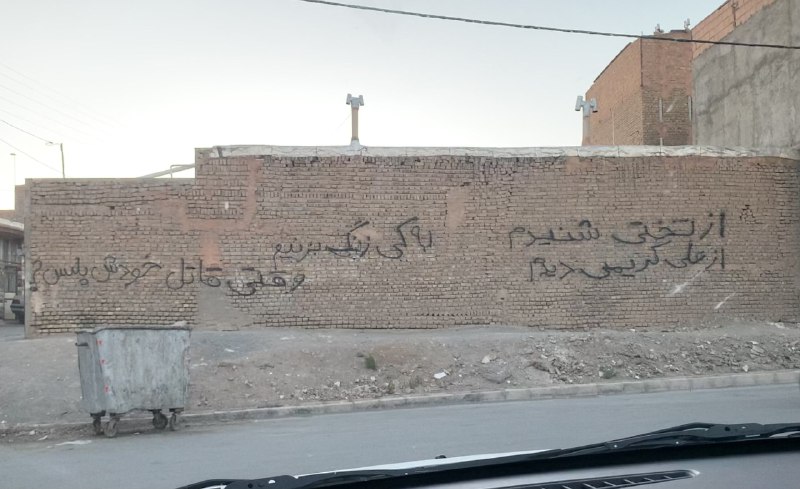 از تختی شنیدم
از علی کریمی دیدم
به کی زنگ بزنیم
وقتی قاتل خودش پلیس؟